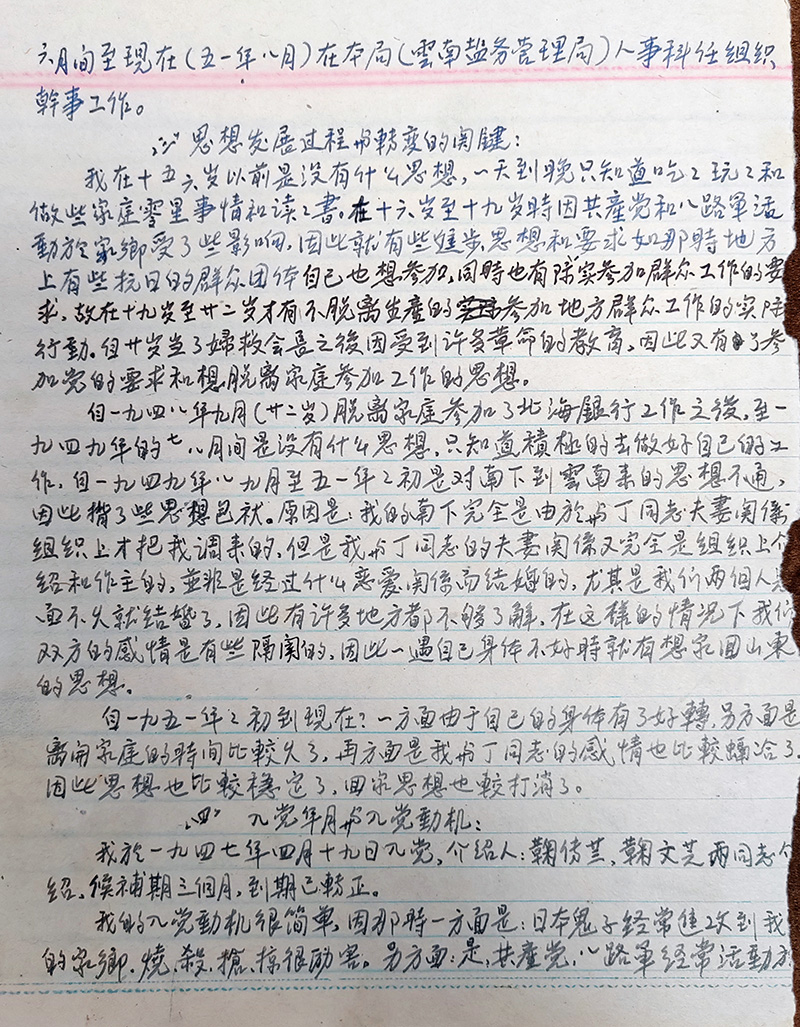 六月间至现在(五一年八月)在本局(雲南盐务管理局)人事科任组织
幹事工作。
三 思想发展过程与轉变的関鍵:
我在十五六岁以前是没有什么思想,一天到晚只知道吃々玩々和
做些家庭零星事情和读々書。在十六岁至十九岁時因共產党和八路軍活
動於家鄉受了些影响,因此就有些進步思想和要求如那時地方
上有些抗日的群众团体自己也想参加,同時也有际实参加群众工作的要
求,故在十九岁至廿二岁才有不脱离生產的参加地方群众工作的实际
行動。自廿岁当了婦救会長之後因受到许多革命的教育,因此又有了参
加党的要求和想脱离家庭参加工作的思想。
自一九四八年九月(廿二岁)脱离家庭参加了北海銀行工作之後,至一
九四九年的七八月间是没有什么思想,只知道積極的去做好自己的工
作,自一九四九年八九月至五一年之初是对南下到雲南来的思想不通,
因此揹了些思想包袱。原因是:我的南下完全是由於与丁同志夫妻関係
組织上才把我调来的,但是我与丁同志的夫妻関係又完全是組织上介
绍和作主的,並非是经过什么恋爱関係而结婚的,尤其是我们两個人见
面不久就结婚了,因此有许多地方都不够了解,在这樣的情况下我们
双方的感情是有些隔阂的,因此一遇自己身体不好時就有想家回山東
的思想。
自一九五一年之初到现在?一方面由于自己的身体有了好轉,另方面是
离開家庭的時间比較久了,再方面是我与丁同志的感情也比較融洽了,
因此思想也比較穩定了,回家思想也較打消了。
四 入党年月与入党動机:
我於一九四七年四月十九日入党,介绍人:鞠传芸,鞠文芝两同志介
绍,候補期三個月,到期已轉正。
我的入党動机很简单,因那時一方面是:日本鬼子经常進攻到我
的家鄉,燒,殺,搶,掠很励害。另方面:是,共產党,八路軍经常活動於